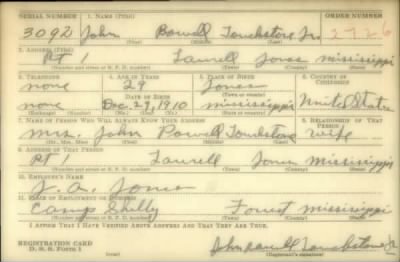 SERIAL NUMBER 1. NAME (Print) ORDER NUMBER
3092 John Powell Touchstone Jr. 2726
(First) (Middle) (Last)
2. ADDRESS (Print)
Rt 1 Laurell Jones Mississippi
(Number and street or R. F. D. number) (Town) (County) (State)
3. TELEPHONE 4. AGE IN YEARS 5. PLACE OF BIRTH 6. COUNTRY OF CITIZENSHIP
none 29 Jones
DATE OF BIRTH (Town or county)
none Dec. 29, 1910 Mississippi United States
(Exchange) (Number) (Mo.) (Day) (Yr.) (State or country)
7. NAME OF PERSON WHO WILL ALWAYS KNOW YOUR ADDRESS 8. RELATIONSHIP OF THAT PERSON
Mrs. John Powell Touchstone wife
(Mr., Mrs., Miss) (First) (Middle) (Last)
9. ADDRESS OF THAT PERSON
Rt 1 Laurell Jones Mississippi
(Number and street or R. F. D. number) (Town) (County) (State)
10. EMPLOYER'S NAME
J. A. Jones
11. PLACE OF EMPLOYMENT OR BUSINESS
Camp Shelby Forrest Mississippi
(Number and street or R. F. D. number) (Town) (County) (State)
I AFFIRM THAT I HAVE VERIFIED ABOVE ANSWERS AND THAT THEY ARE TRUE.
REGISTRATION CARD
D. S. S. FORM 1 John Powell Touchstone Jr
(over) (Registrant's signature)